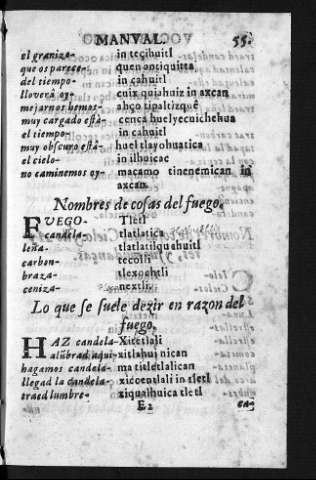 MANVAL. 55.
el granizo- in teçihuitl
que os parece- quen ontiquitta
del tiempo- in cahuitl
llouerà oy- cuix quiahuiz in axcan
mejarnos hemos- ahço tipaltizquè
muy cargado està- cenca huelyecuichehua
el tiempo- in cahuitl
muy obscuro està- huel tlayohuatica
el cielo- in ilhuicac
no caminemos oy- macamo tinenemican in
axcan.
Nombres de cosas del fuego.
FVEGO- Tletl
candela- tlatlatica
leña- tlatlatilquahuitl
carbon- tecolli
braza- tlexochtli
ceniza- nextli.
Lo que se suele dezir en razon del
fuego.
HAZ candela- Xitetlali
alũbrad aqui- xitlahui nican
hagamos candela- ma titletlalican
llegad la candela- xicoentlali in tletl
traed lumbre- xiqualhuica tletl
E2 en-